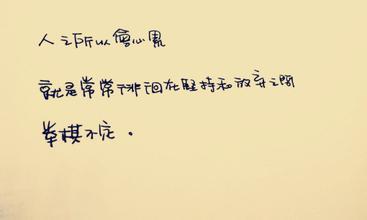 人之所以會心累
就是常常徘徊在堅持和放弃之間
举棋不定。